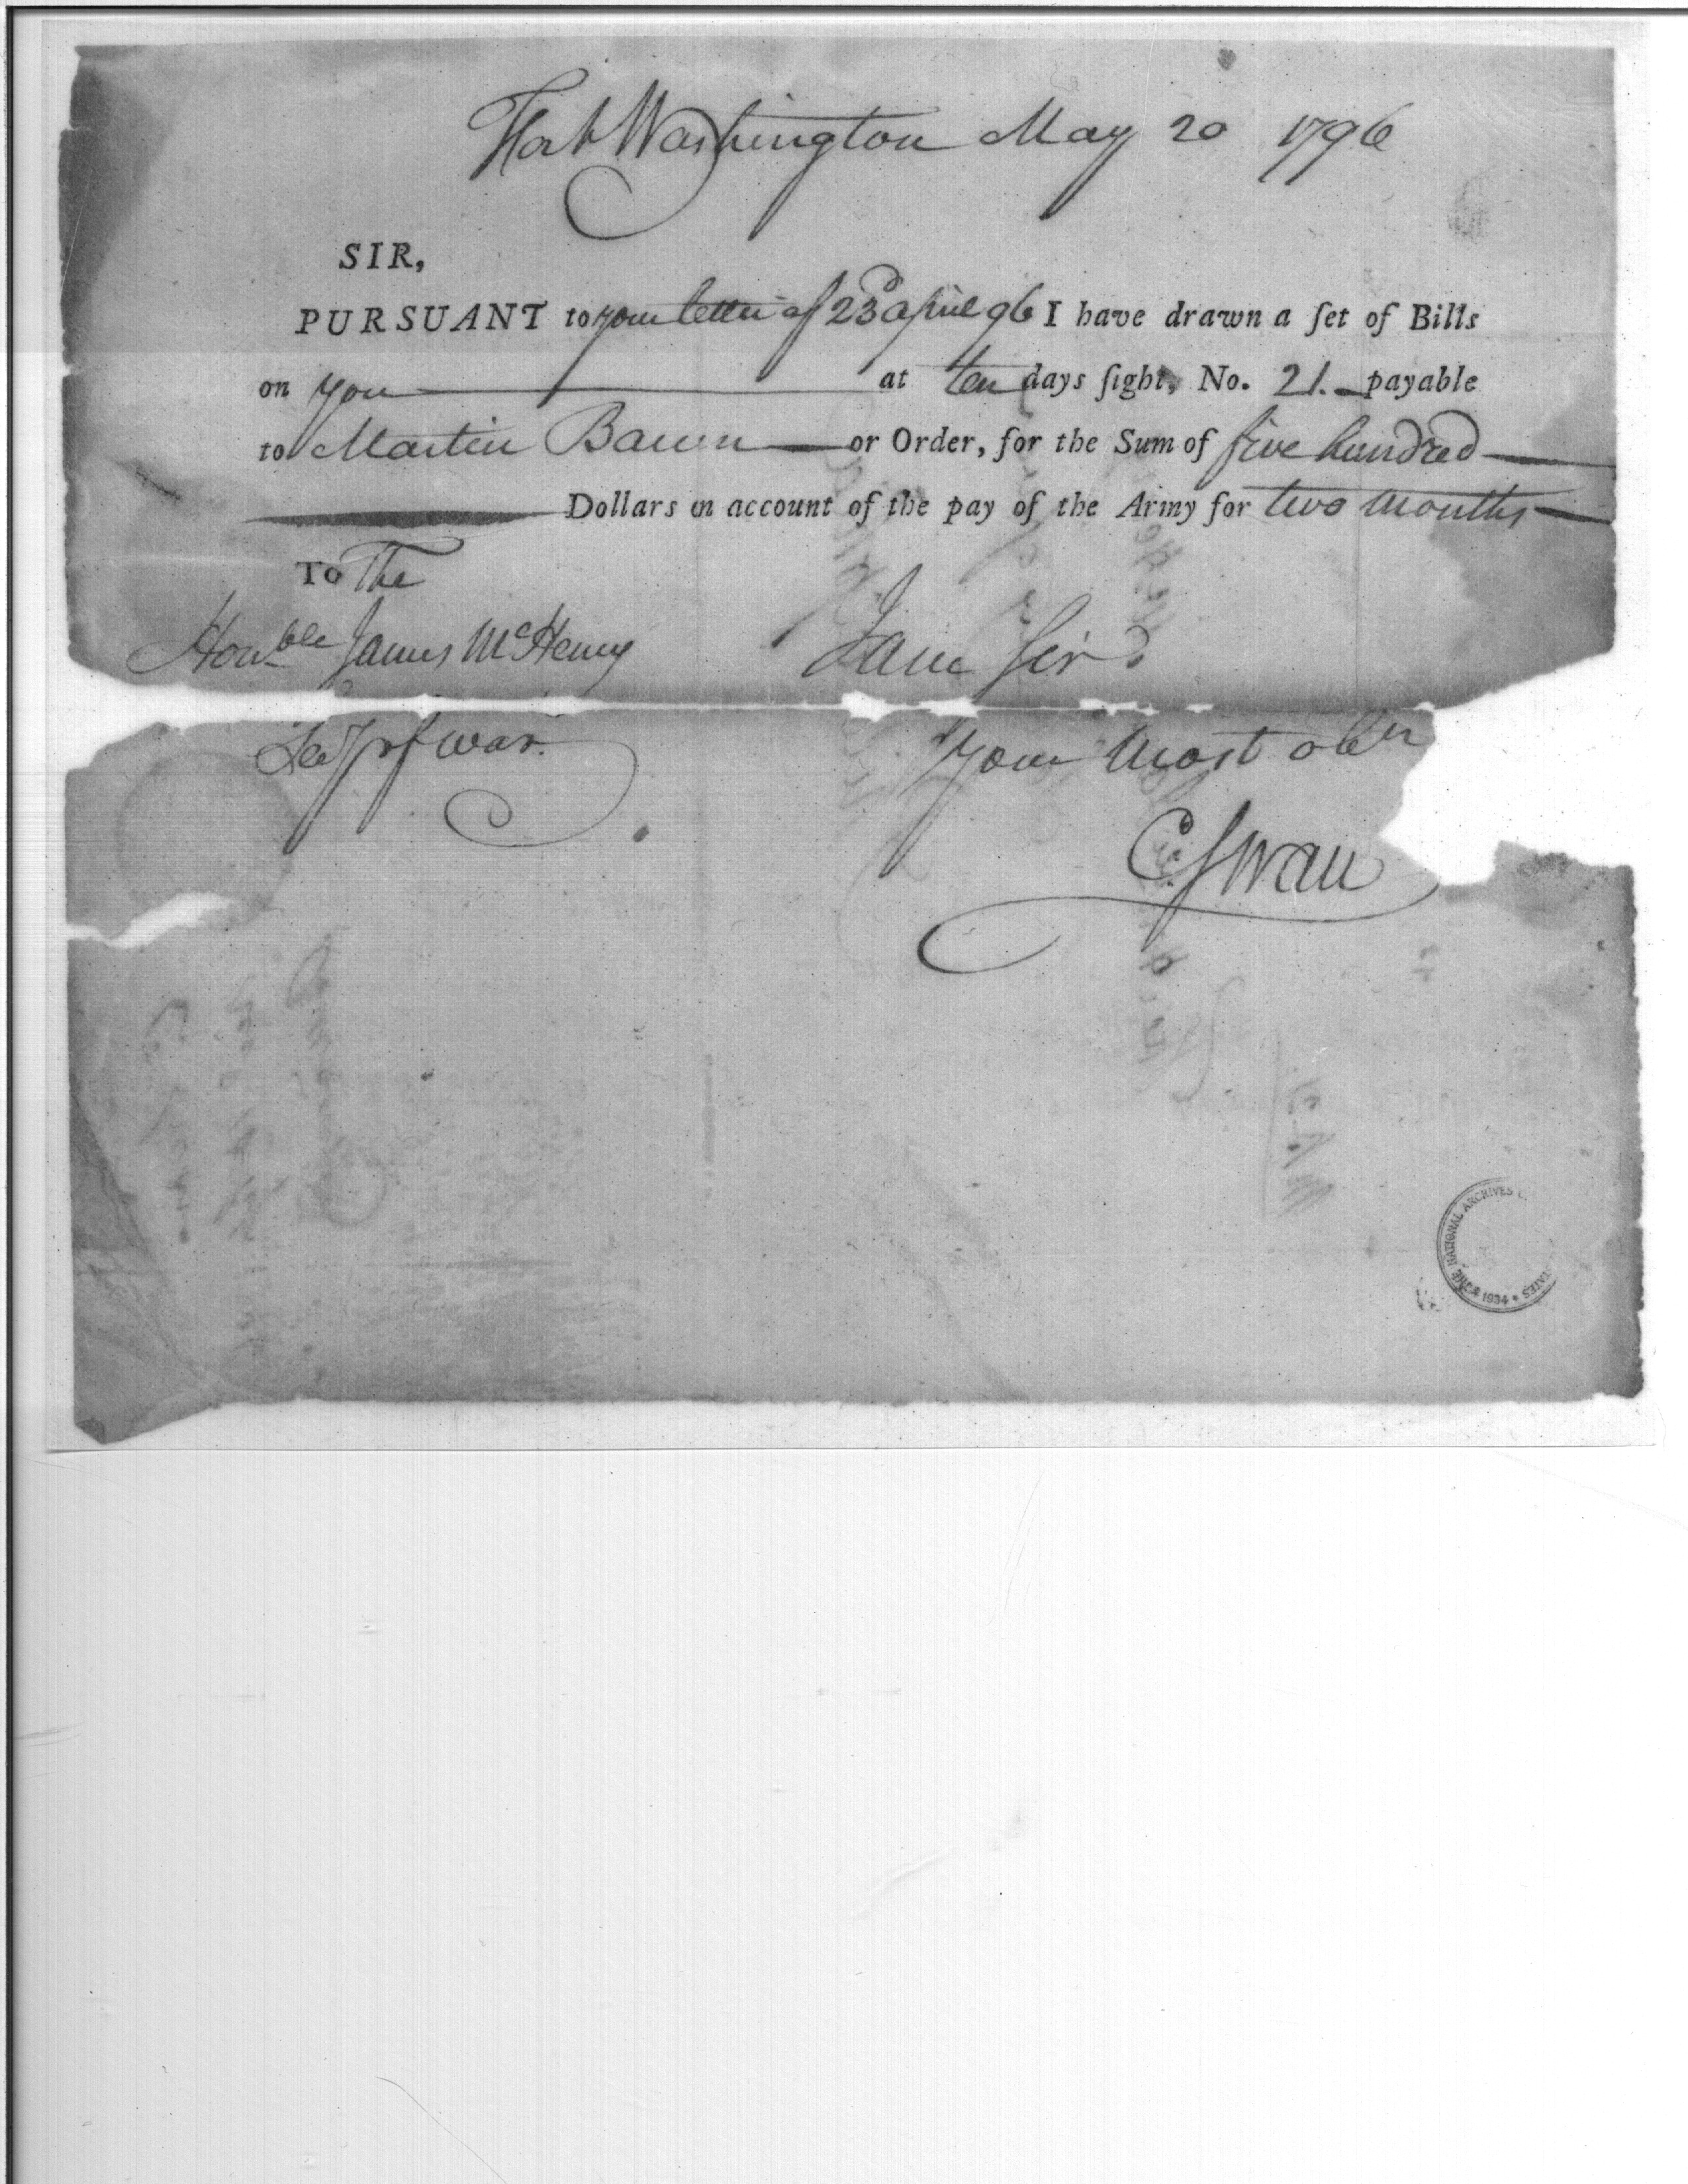 Fort Washington May 20 1796
SIR,
PURSUANT to your letter of 23d april 96 I have drawn a ſet of Bills
on you at ten days ſight, No. 21. payable
to Martin Baum or Order, for the Sum of five hundred
Dollars on account of the pay of the Army for two months
To The
Honble James McHenry
I am Sir
Secy of war.
your most obt
C. Swan
THE NATIONAL ARCHIVES
TATES
1934